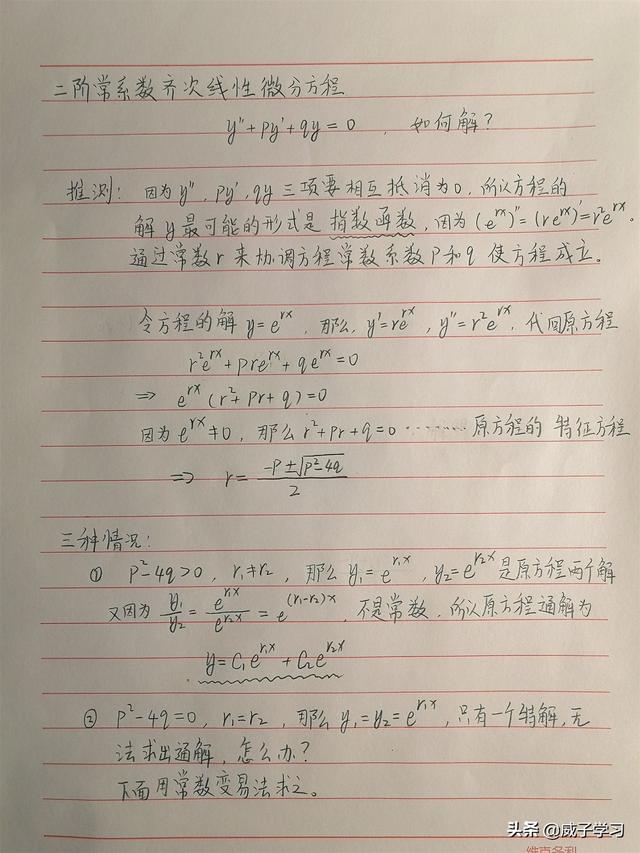 二阶常系数齐次线性微分方程
y″+py′+qy=0 , 如何解?
推测: 因为y″, py′, qy 三项要相互抵消为0, 所以方程的
解y最可能的形式是 指数函数, 因为(e^{rx})″=(re^{rx})′=r²e^{rx}。
通过常数r来协调方程常数系数p和q 使方程成立。
令方程的解y=e^{rx}, 那么, y′=re^{rx}, y″=r²e^{rx}, 代回原方程
r²e^{rx}+pre^{rx}+qe^{rx}=0
⇒ e^{rx}(r²+pr+q)=0
因为e^{rx}≠0, 那么r²+pr+q=0 ········ 原方程的 特征方程
⇒ r=\frac{-p±\sqrt{p²-4q}}{2}
三种情况:
① p²-4q>0, r₁≠r₂, 那么 y₁=e^{r₁x}, y₂=e^{r₂x}是原方程两个解
又因为 \frac{y₁}{y₂}=\frac{e^{r₁x}}{e^{r₂x}}=e^{(r₁-r₂)x}, 不是常数, 所以原方程通解为
y=C₁e^{r₁x}+C₂e^{r₂x}
② p²-4q=0, r₁=r₂, 那么y₁=y₂=e^{r₁x}, 只有一个特解, 无
法求出通解, 怎么办?
下面用常数变易法求之。
头条 @威子学习